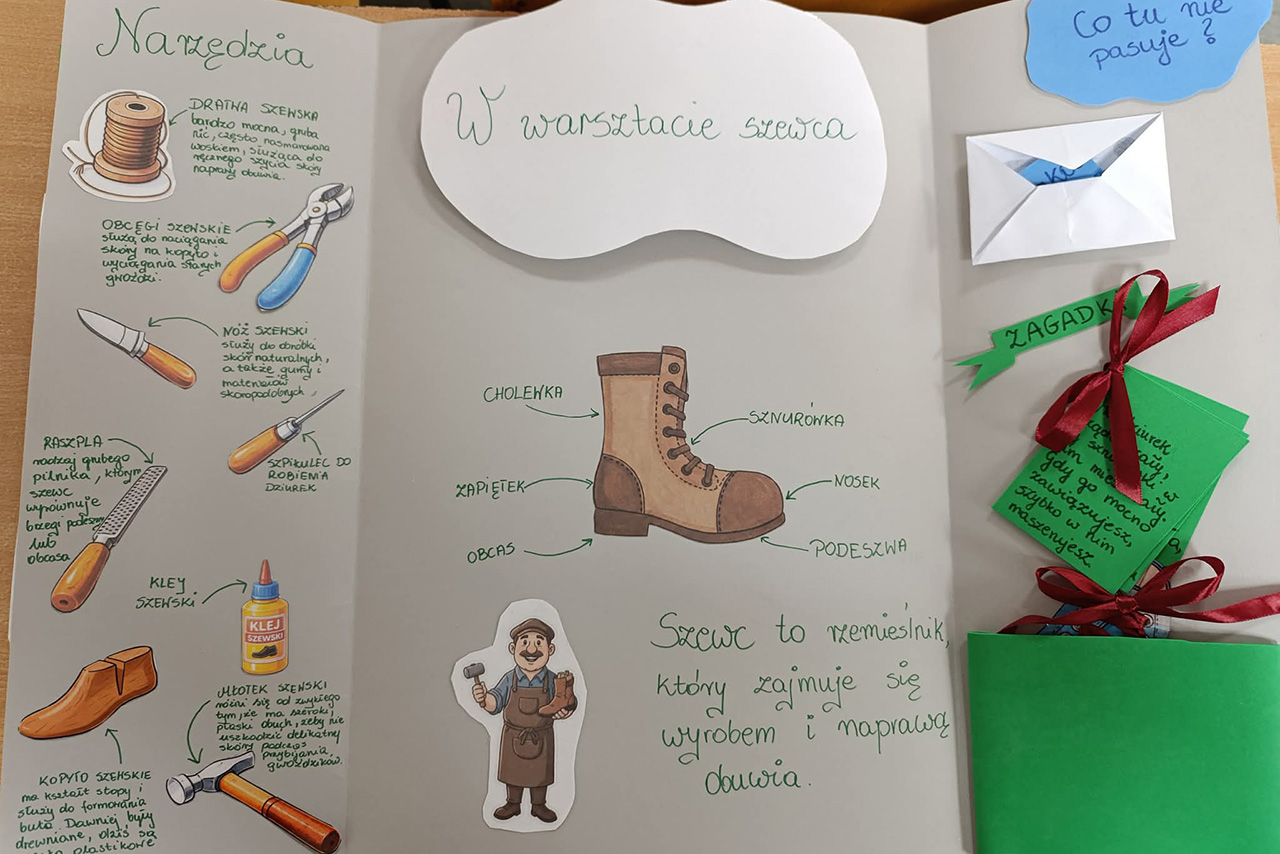 Narzędzia
DRATWA SZEWSKA
bardzo mocna, gruba
nić, często nasmarowana
woskiem, służąca do
ręcznego szycia skór
naprawy obuwia.
OBCĘGI SZEWSKIE
służą do naciągania
skóry na kopyto i
wyciągania starych
gwoździ.
NÓŻ SZEWSKI
służy do obróbki
skór naturalnych,
a także gumy i
materiałów
skóropodobnych
SZPIKULEC DO
ROBIENIA
DZIUREK
RASZPLA
rodzaj grubego
pilnika, którym
szewc
wyrównuje
brzegi podeszwy
lub
obcasa
KLEJ
SZEWSKI
KLEJ
SZEWSKI
MŁOTEK SZEWSKI
różni się od zwykłego
tym, że ma szeroki,
płaski obuch, żeby nie
uszkodzić delikatnej
skóry podczas
przybijania
gwoździków.
KOPYTO SZEWSKIE
ma kształt stopy i
służy do formowania
buta. Dawniej były
drewniane, dziś są
plastikowe
W warsztacie szewca
CHOLEWKA
SZNURÓWKA
ZAPIĘTEK
NOSEK
OBCAS
PODESZWA
Szewc to rzemieślnik,
który zajmuje się
wyrobem i naprawą
obuwia.
Co tu nie
pasuje?
ZAGADK
gdy go mocno
zawiązujesz,
szybko w nim
maszerujesz.